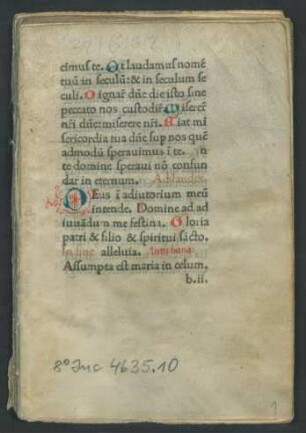 cimus te. Et laudamus nomē
tuū in seculū: & in seculum se
culi. Dignare dñe die isto sine
peccato nos custodire Miserere
nr̄i dñe: miserere nr̄i. Fiat mi
sericordia tua dñe sup nos quē
admodū speravimus ī te. n
te domine speravi nō confun
dar in eternum. Ad laudes.
Deus ī adiutorium meū
intende. Domine ad ad
iuvādum me festina. Gloria
patri & filio & spiritui sācto.
alleluia.
Assumpta est maria in celum,
b.ii.
8° Inc 4635.10
1